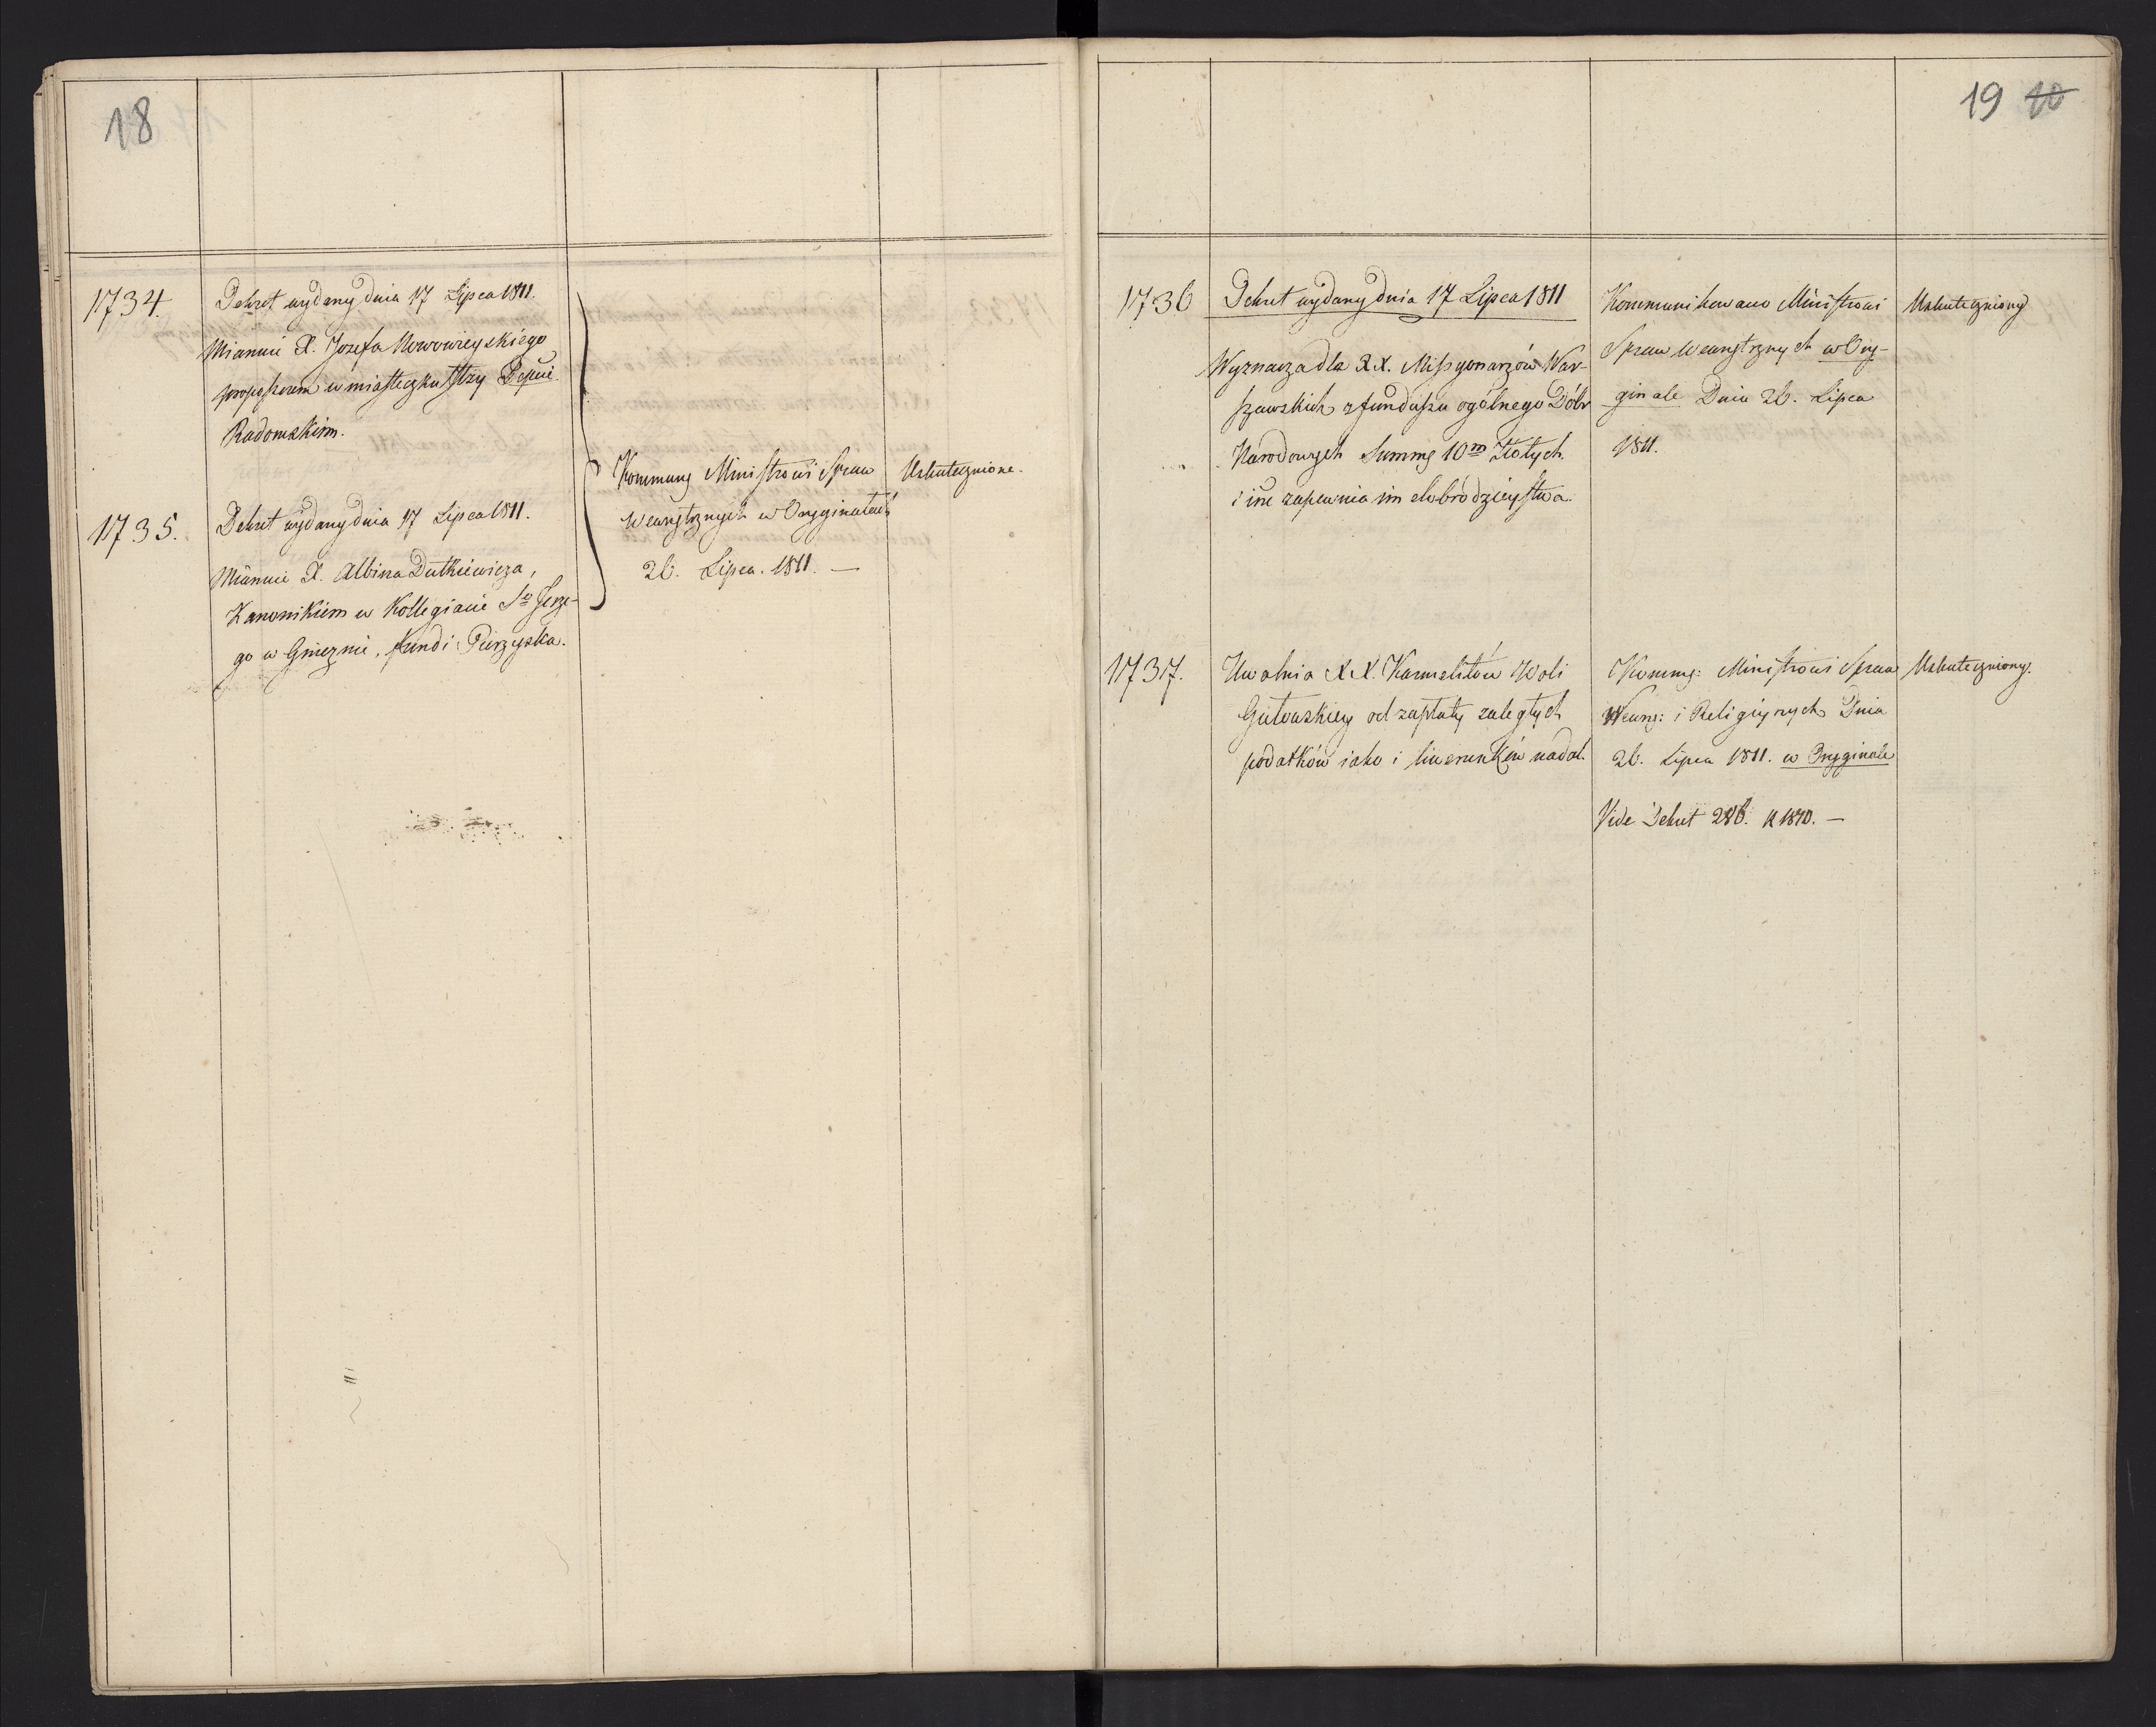 18
1734.
Dekret wydany dnia 17 Lipca 1811.
Mianuie X. Jozefa Nowowieyskiego
proposzczem w miasteczku Dep̃cie
Radomskim.
1735.
Dekret wydany dnia 17 Lipca 1811.
Mianuie X. Albina Dutkiewicza,
Kanonikiem w Kollegiacie Sgo Jerze-
go w Gnieznie, fundi
Kommung Ministrowi Spraw
Wewnętrznych w Orygginałach
26. Lipca. 1811. —
Uskutecznione.
19 10
1736
Dekret wydany dnia 17 Lipca 1811
Wyznacza dla X.X. Missyonarzów War-
szawskich z funduszu ogólnego Dóbr
Narodowych Summę 10m Złotych
i ine zapewnia im dobrodzieystwa.
Kommunikowano Ministrowi
Spraw Wewnętrznych w Ory-
ginale Dnia 26. Lipca
1811.
Uskuteczniony
1737.
Uwalnia X.X. Karmelitów Woli
Gutowskiey od zapłaty zaległych
podatków iako i liwerunków nadal.
Kommg: Ministrowi Spraw
Wewng: i Religiynych Dnia
26. Lipca 1811. w Orygginale
Vide Dekret 286. R 1810. —
Uskuteczniony.